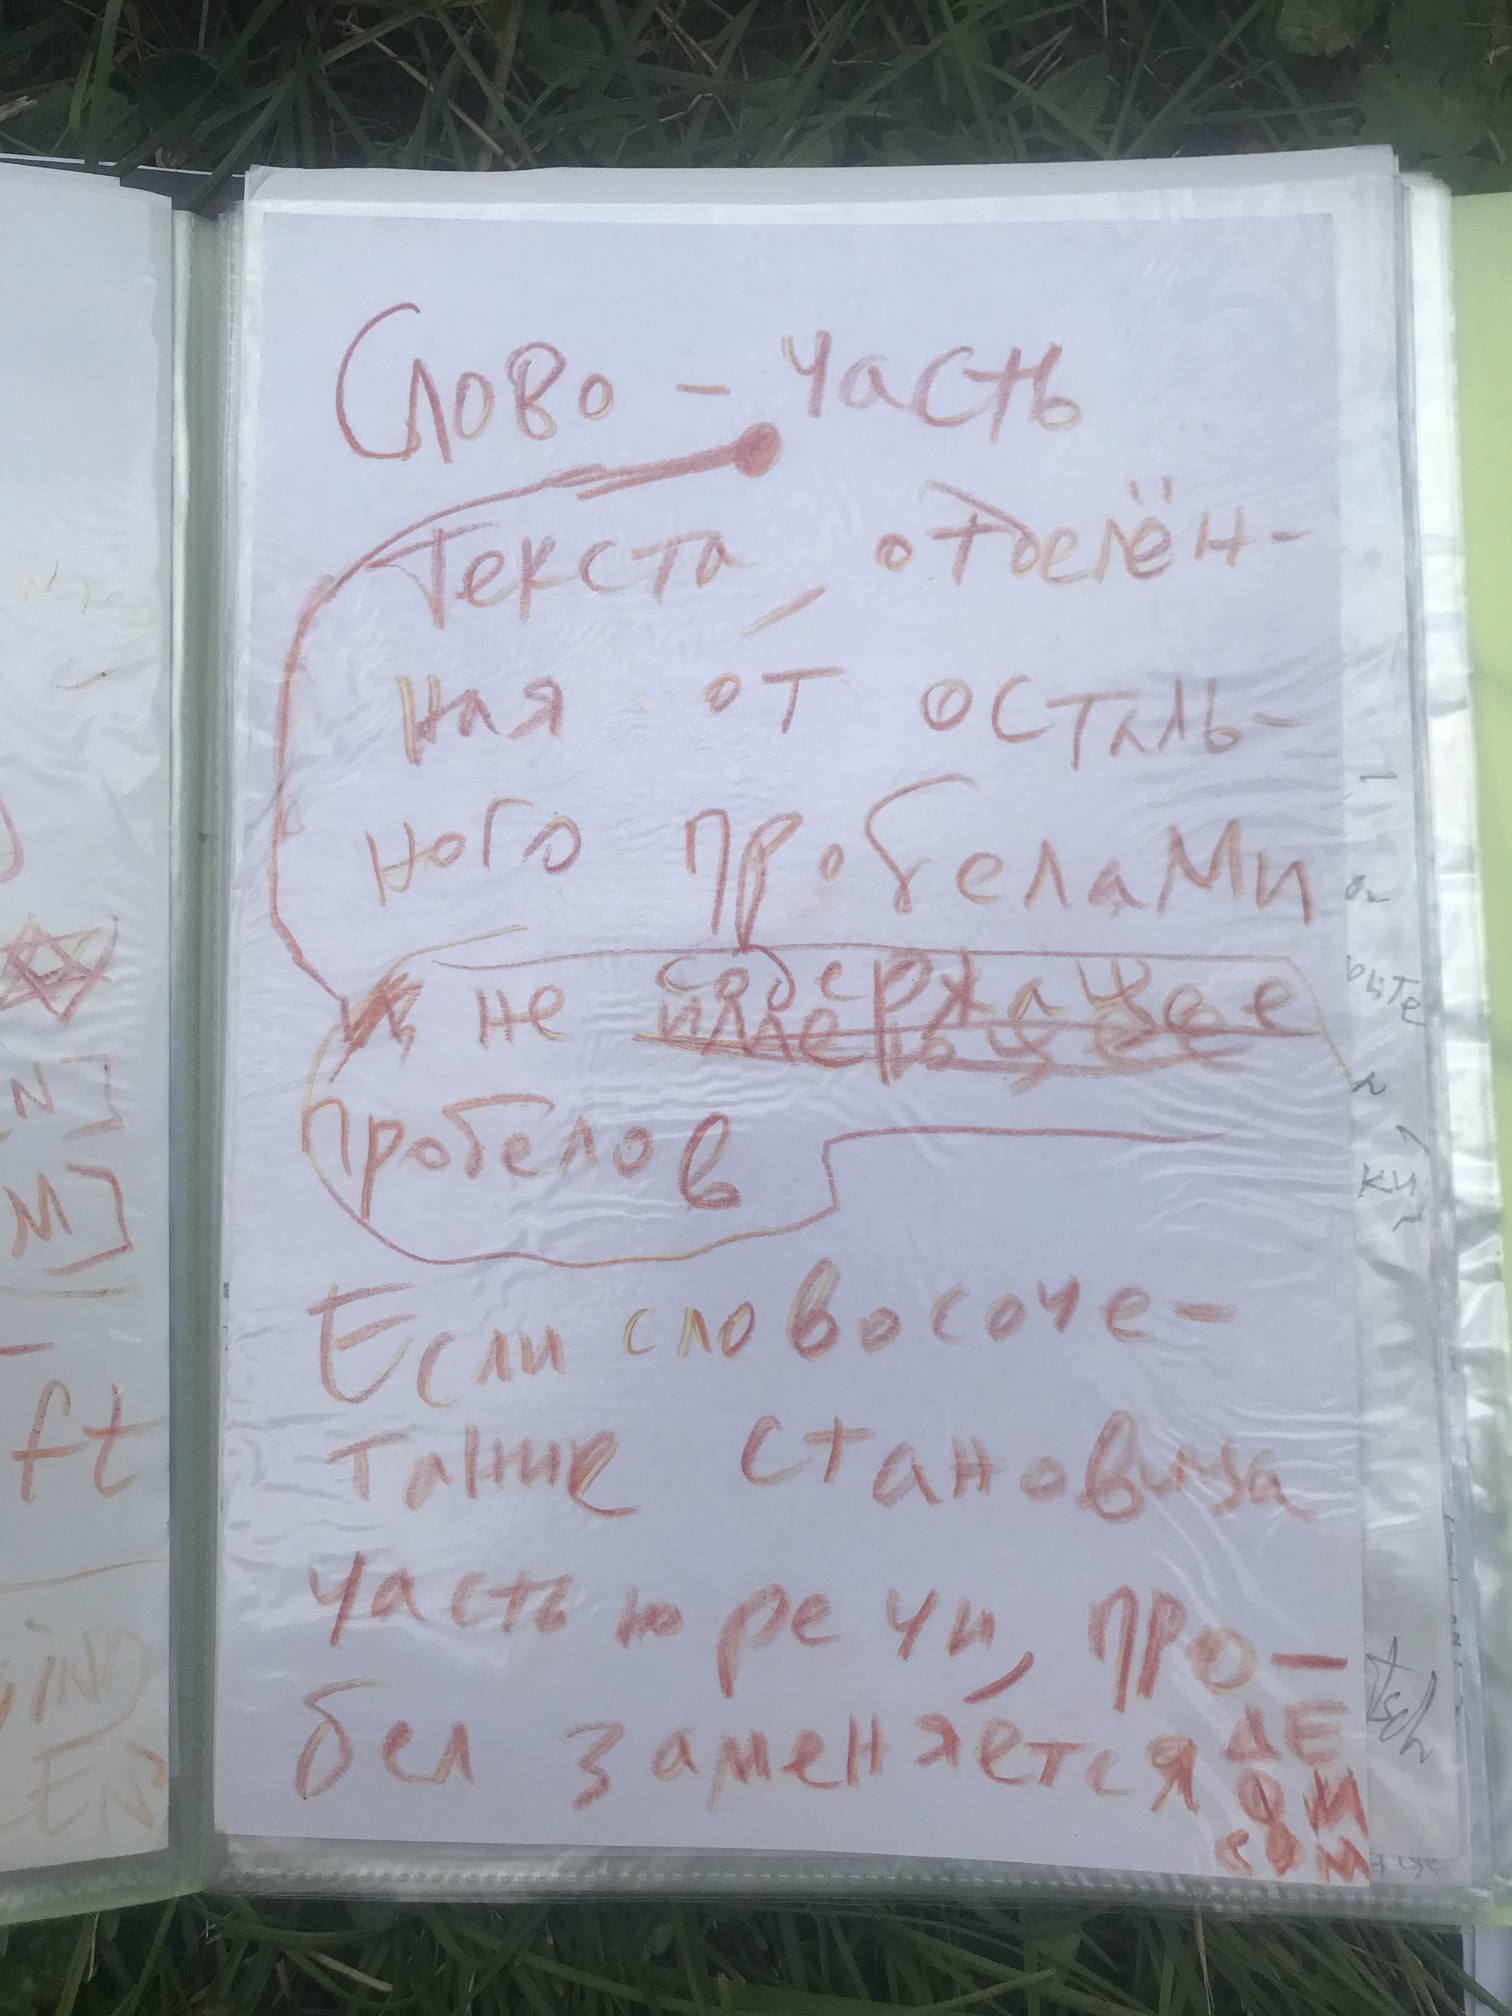 Слово - часть
текста, отделён-
ная от осталь-
ного пробелами
не содержащее
пробелов
Если словосоче-
тание становится
частью речи, про-
бел заменяется ДЕ
ФИ
СОМ
N]
M]
ft
IND
EN
ыте
ки